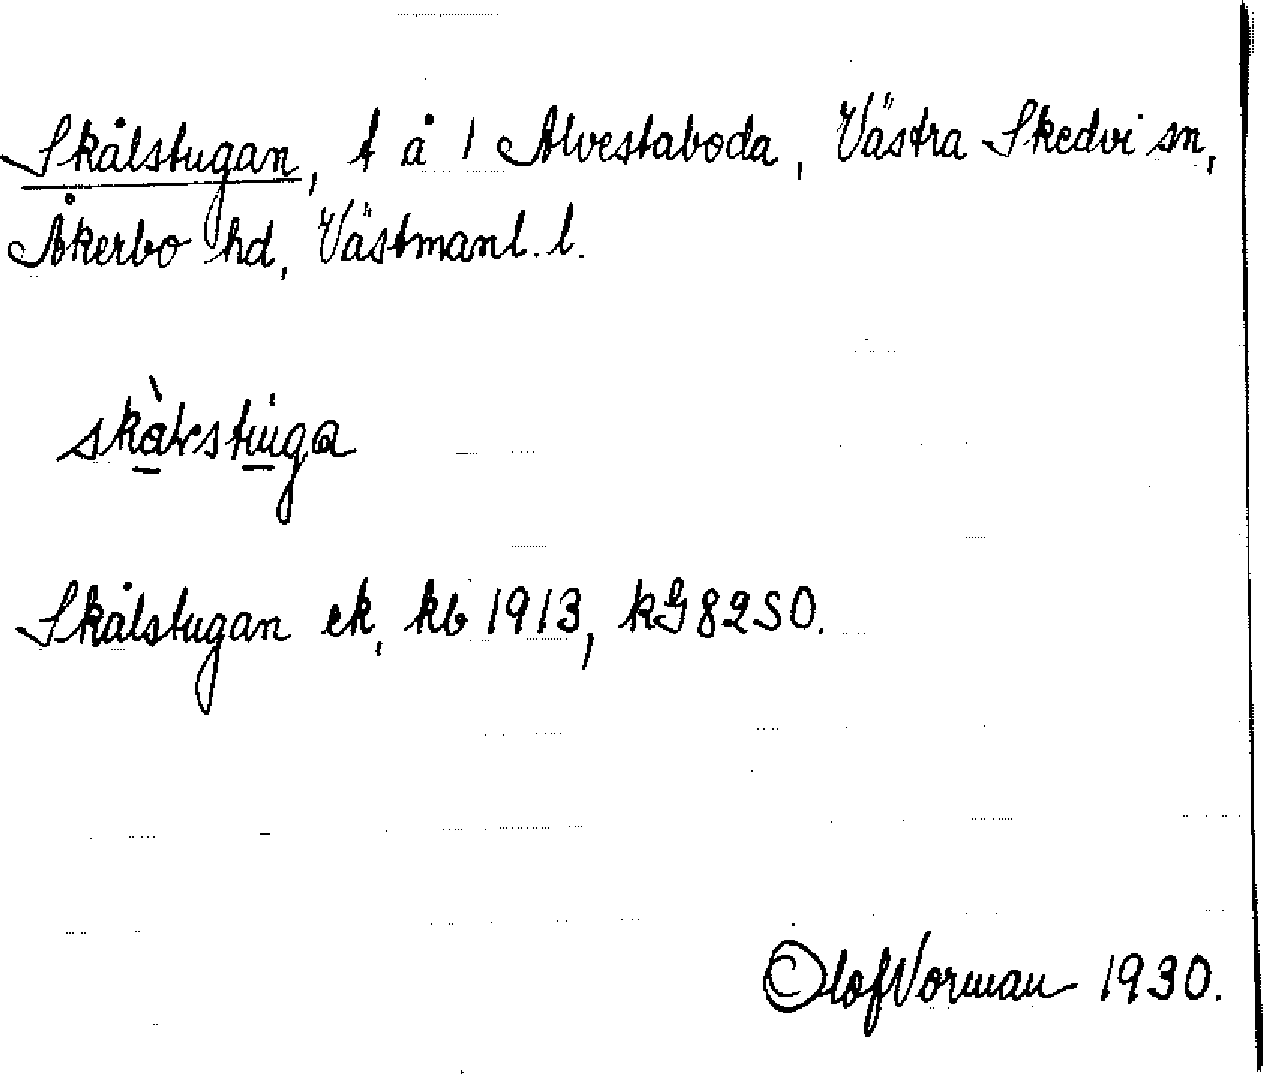 Skålstugan, t å 1 Alvestaboda, Västra Skedvi sn,
Åkerbo hd, Västmanl. l.
Skålstugan ek, kb 1913, kG 82SO.
Olof Norman 1930.